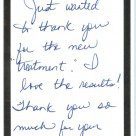 Just wanted
to thank you
for the new
"treatment." I
love the results!
Thank you so
much for your